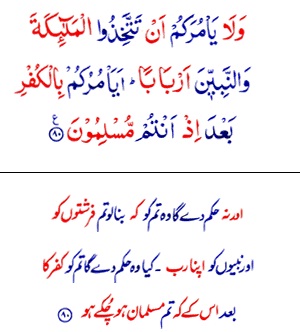 وَلَا يَاْمُرَكُمْ اَنْ تَتَّخِذُوا الْمَلٰٓئِكَةَ
وَالنَّبِيّٖنَ اَرْبَابًا ؕ اَيَاْمُرُكُمْ بِالْكُفْرِ
بَعْدَ اِذْ اَنْتُمْ مُّسْلِمُوْنَ ﴿۸۰﴾ ع
اور نہ حکم دے گا وہ تم کو کہ بنا لو تم فرشتوں کو
اور نبیوں کو اپنا رب ۔ کیا وہ حکم دے گا تم کو کفر کا
بعد اس کے کہ تم مسلمان ہو چکے ہو ﴿۸۰﴾